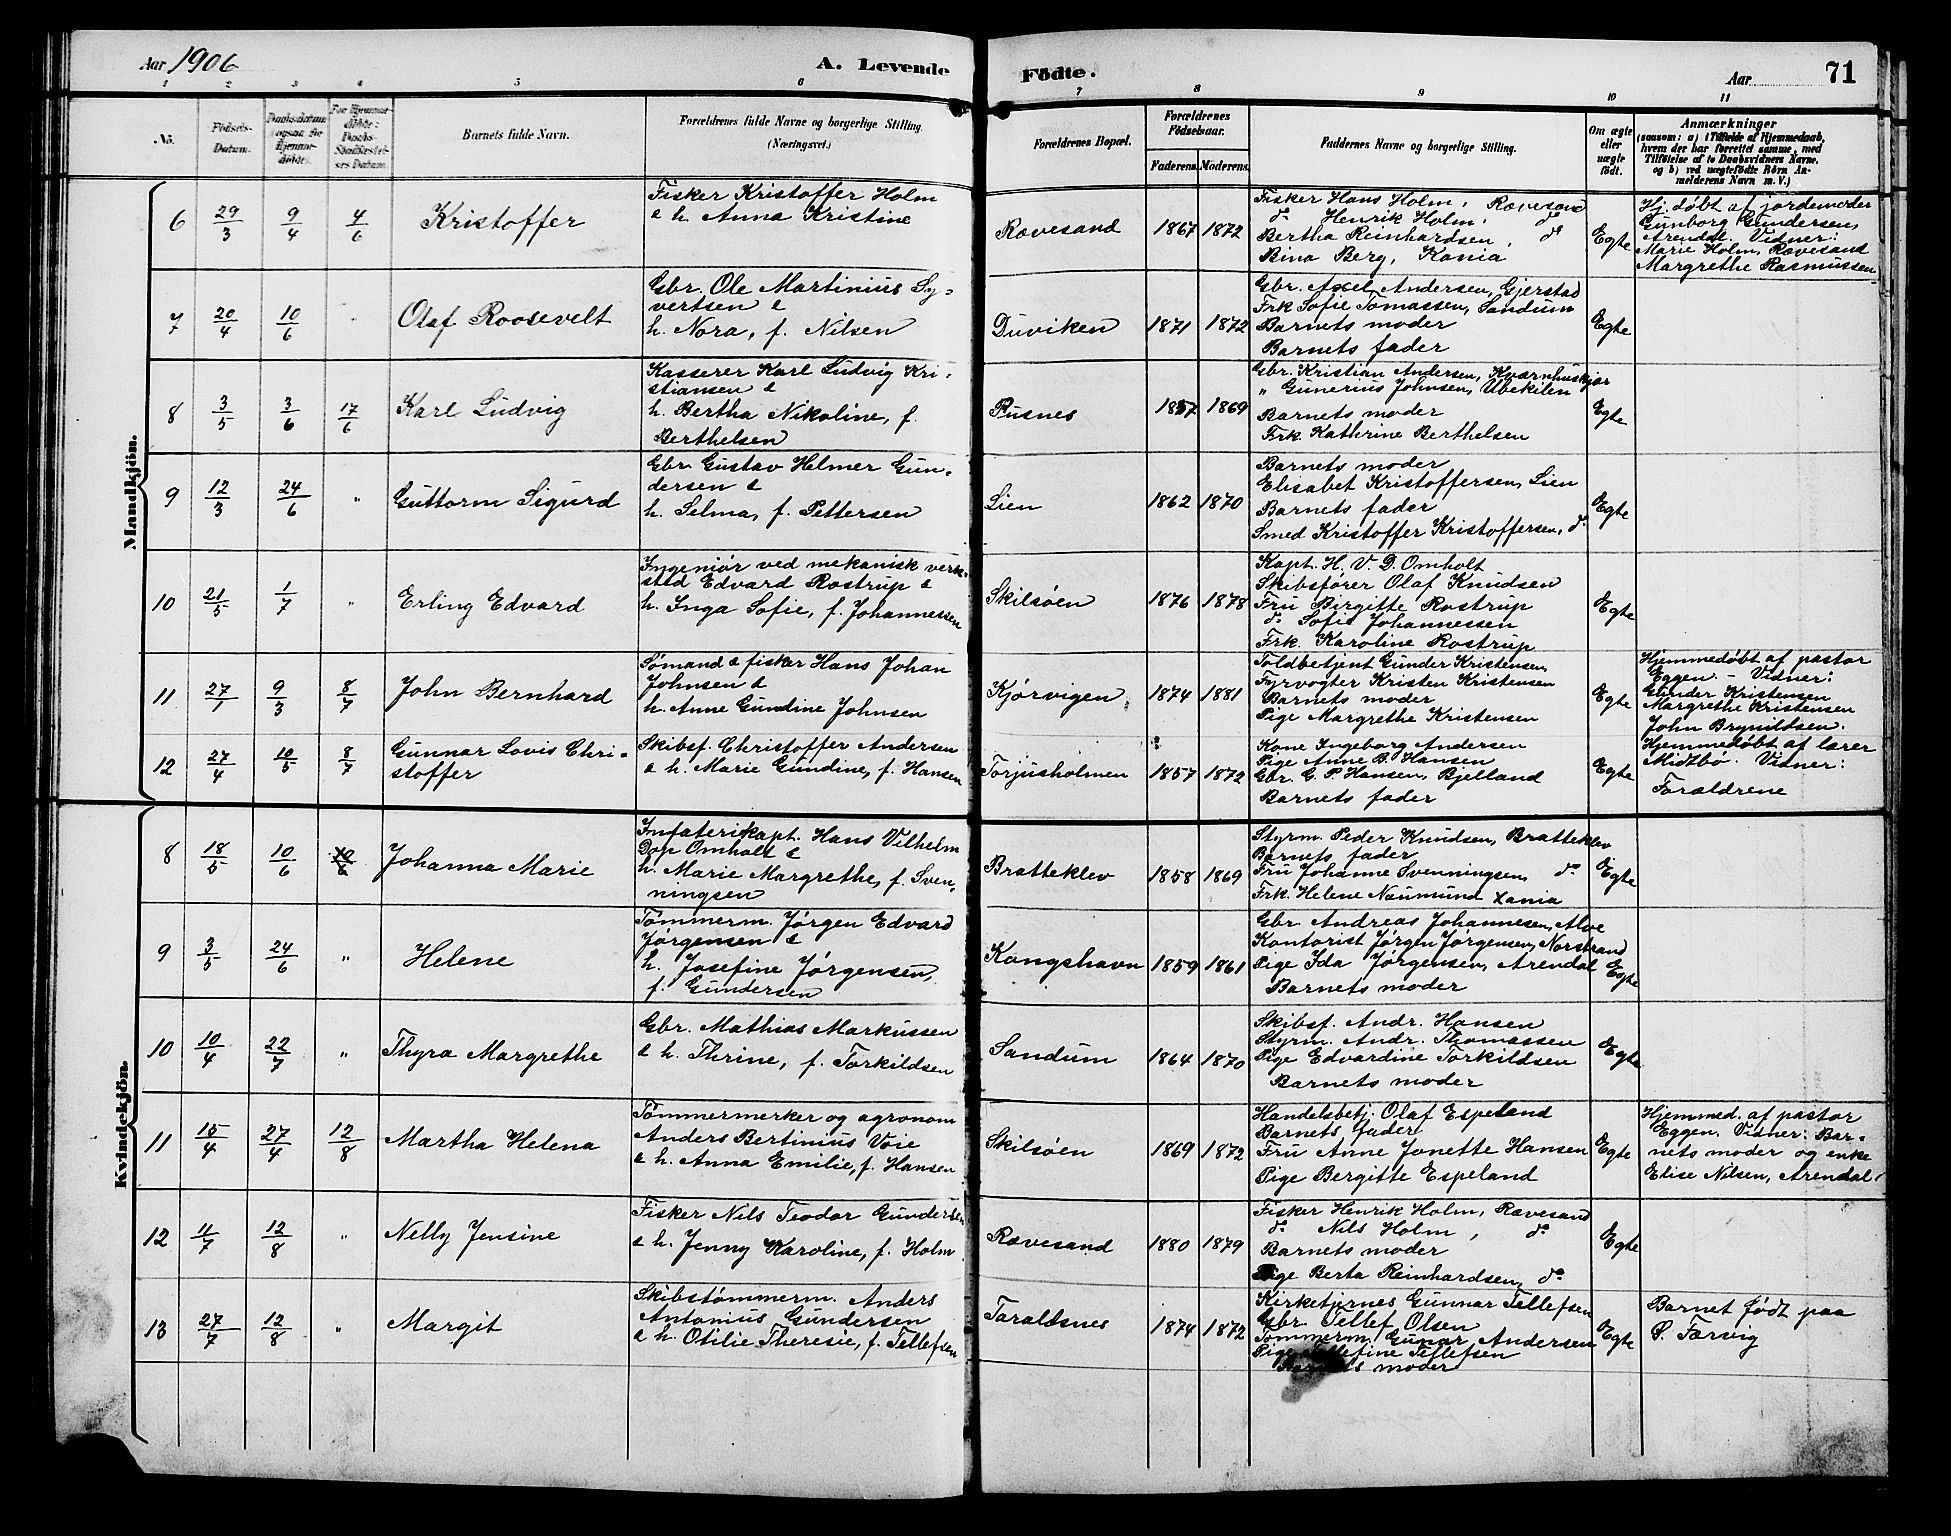 Aar 1906
A. Levende
Födte.
Aar
71
1 2 3 4 5 6 7 8 9 10 11
No.
Födsels-
Datum.
Daabsdatum
(ogsaa for
Hjemme-
döbte).
For Hjemme-
döbte:
Daabs-
Stadfæstel-
ses Datum.
Barnets fulde Navn.
Forældrenes fulde Navne og borgerlige Stilling.
(Næringsvei.)
Forældrenes Bopæl.
Forældrenes
Födselsaar.
Faderens. Moderens.
Faddernes Navne og borgerlige Stilling.
Om ægte
eller
uægte
födt.
Anmærkninger
(saasom: a) i Tilfælde af Hjemmedaab,
hvem der har forrettet samme, med
Tilföielse af to Daabsvidners Navne.
og b) ved uægtefödte Börn An-
melderens Navn m. V.)
Mandkjön.
6 29/3 9/4 4/6 Kristoffer
Fisker Kristoffer Holm
& h. Anna Kristine
Rævesand 1867 1872
Fisker Hans Holm, Rævesand
do Henrik Holm, do
Bertha Reinhardsen, do
Bina Berg, Kania
Egte
Hj. døbt af jordemoder
Gunborg Gundersen,
Arendal. Vidner:
Marie Holm, Rævesand
Margrethe Rasmussen
7 20/4 10/6 Olaf Roosevelt
Gbr. Ole Martinius Sy-
vertsen &
h. Nora, f. Nilsen
Duviken 1871 1872
Gbr. Axel Andersen, Gjerstad
Frk Sofie Tomassen, Sandum
Barnets moder
Barnets fader
Egte
8 3/5 3/6 17/6 Karl Ludvig
Kasserer Karl Ludvig Kri-
stiansen &
h. Bertha Nikoline, f.
Berthelsen
Rusnes 1857 1869
Gbr. Kristian Andersen, Kværnhuskjær
" Gunerius Johnsen, Ubekilen
Barnets moder
Frk. Kathrine Berthelsen
Egte
9 12/3 24/6 " Guttorm Sigurd
Gbr. Gustav Helmer Gun-
dersen &
h. Selma, f. Pettersen
Lien 1862 1870
Barnets moder
Elisabet Kristoffersen, Lien
Barnets fader
Smed Kristoffer Kristoffersen, do
Egte
10 21/5 1/7 " Erling Edvard
Ingeniør ved mekanisk verk-
sted Edvard Rostrup &
h. Inga Sofie, f. Johannessen
Skilsøen 1876 1878
Kapt. H. V. D. Omholt
Skibsfører Olaf Knudsen
Fru Birgitte Rostrup
do Sofie Johannessen
Frk. Karoline Rostrup
Egte
11 27/1 9/3 8/7 John Bernhard
Sømand & fisker Hans Johan
Johnsen &
h. Anne Gundine Johnsen
Kjørvigen 1874 1881
Toldbetjent Gunder Kristensen
Fyrvogter Kristen Kristensen
Barnets moder
Pige Margrethe Kristensen
Egte
Hjemmedøbt af pastor
Eggen. - Vidner:
Gunder Kristensen
Margrethe Kristensen
John Brynildsen.
12 27/4 10/5 8/7 Gunnar Lovis Chri-
stoffer
Skibsf. Christoffer Andersen
& h. Marie Gundine, f. Hansen
Torjusholmen 1857 1872
Kone Ingeborg Andersen
Pige Anne B. Hansen
Gbr. G. P. Hansen, Bjelland
Barnets fader
Egte
Hjemmedøbt af lærer
Midtbø. Vidner:
Forældrene
Kvindekjön.
8 18/5 10/6 Johanna Marie
Infaterikapt. Hans Vilhelm
Dop Omholt &
h. Marie Margrethe, f. Sven-
ningsen
Bratteklev 1858 1869
Styrm. Peder Knudsen, Bratteklev
Barnets fader
Fru Johanne Svenningsen, do
Frk. Helene Neumund Xania
Egte
9 3/5 24/6 " Helene
Tømmerm. Jørgen Edvard
Jørgensen &
h. Josefine Jørgensen,
f. Gundersen
Kongshavn 1859 1861
Gbr. Andreas Johannesen, Alve
Kontorist Jørgen Jørgensen, Norstrand
Pige Ida Jørgensen, Arendal
Barnets moder
Egte
10 10/4 22/7 " Thyra Margrethe
Gbr. Mathias Markussen
& h. Thrine, f. Torkildsen
Sandum 1864 1870
Skibsf. Andr. Hansen
Styrm. Andr. Thomassen
Pige Edvardine Torkildsen
Barnets moder
Egte
11 15/4 27/4 12/8 Martha Helena
Tømmermerker og agronom
Anders Bertinius Voie
& h. Anna Emilie, f. Hansen
Skilsøen 1869 1872
Handelsbetj. Olaf Espeland
Barnets fader
Fru Anne Jonette Hansen
Pige Bergitte Espeland
Egte
Hjemmed. af pastor
Eggen. Vidner: Bar-
nets moder og enke
Elise Nilsen, Arendal.
12 11/7 12/8 " Nelly Jensine
Fisker Nils Teodor Gundersen
& h. Jenny Karoline, f. Holm
Rævesand 1880 1879
Fisker Henrik Holm, Rævesand
do Nils Holm, do
Barnets moder
Pige Berta Reinhardsen, do
Egte
13 27/7 12/8 " Margit
Skibstømmerm. Anders
Antonius Gundersen
& h. Otilie Theresie, f. Tellefsen
Taraldsnes 1874 1872
Kirketjenes Gunnar Tellefsen
Gbr Tellef Olsen
Tømmerm. Gunar Andersen
Pige Tellefine Tellefsen
Barnets moder
Egte
Barnet født paa
S. Torvig